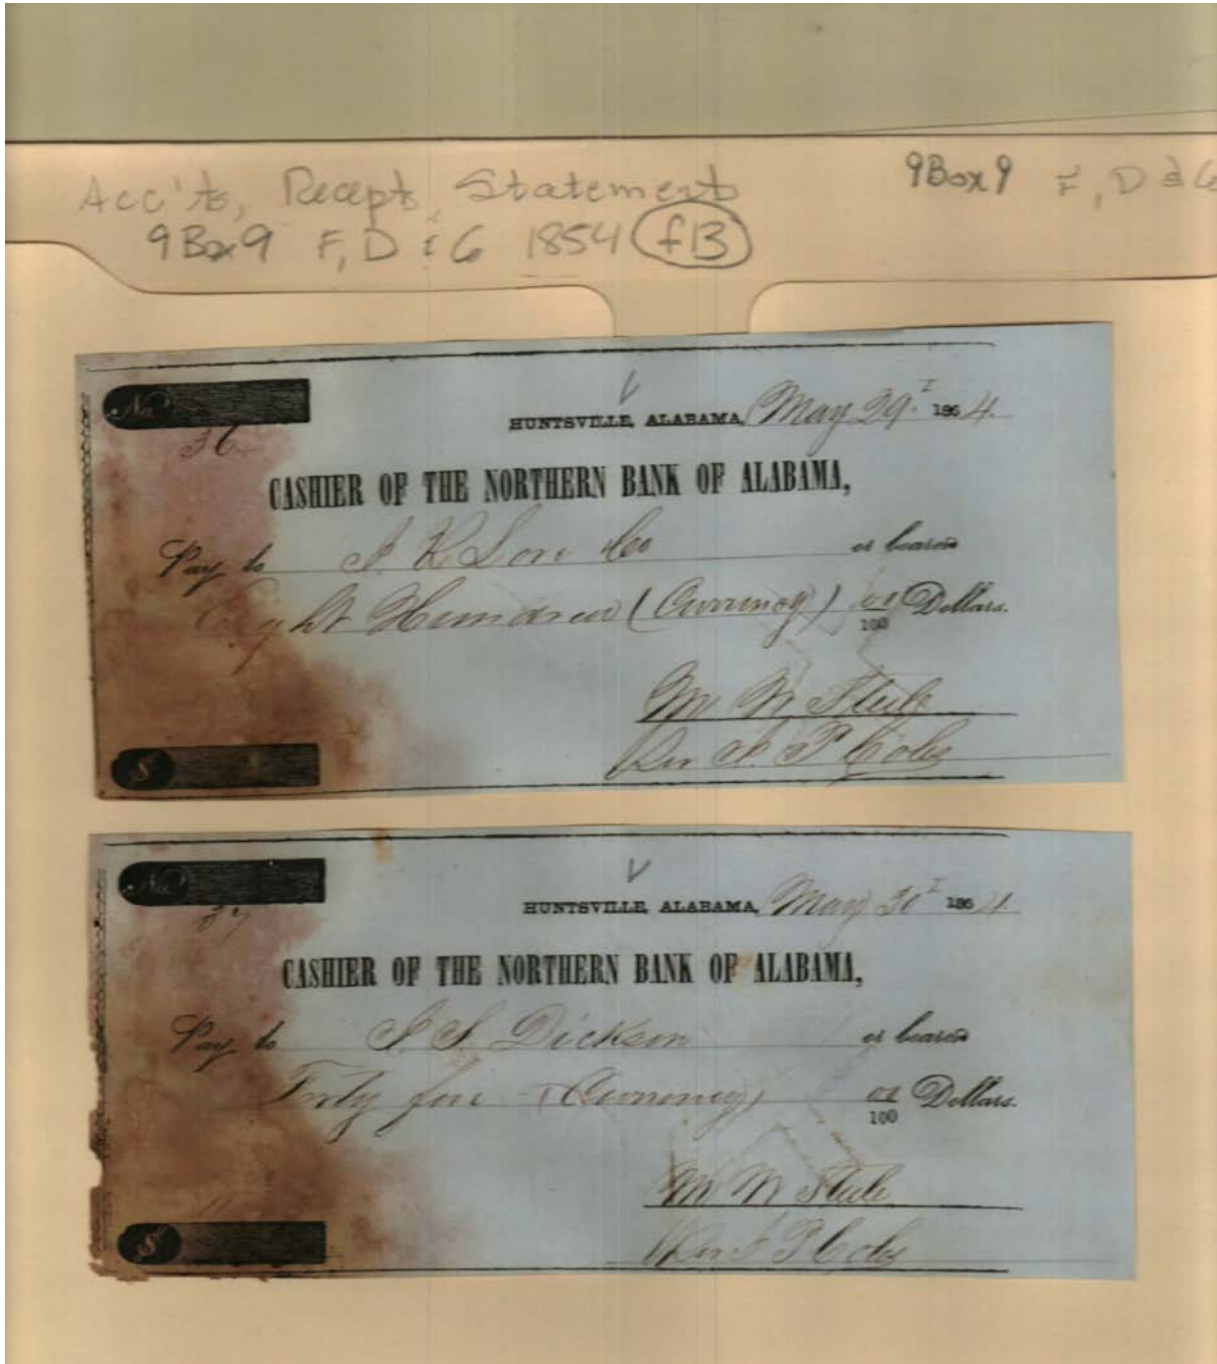 Acc'ts, Recept, Statements
9Box9 F, D & G 1854 f13
9Box9 F, D & G
No
36
HUNTSVILLE, ALABAMA, May 29. 1854.
CASHIER OF THE NORTHERN BANK OF ALABAMA,
Pay to or bearer
Eight Hundred (Currency) 00/100 Dollars.
M W Steele
Per
$
No
37
HUNTSVILLE, ALABAMA, May 30 1854
CASHIER OF THE NORTHERN BANK OF ALABAMA,
Pay to S. S. Dickson or bearer
Forty five (Currency) 00/100 Dollars.
M W Steele
Per
$